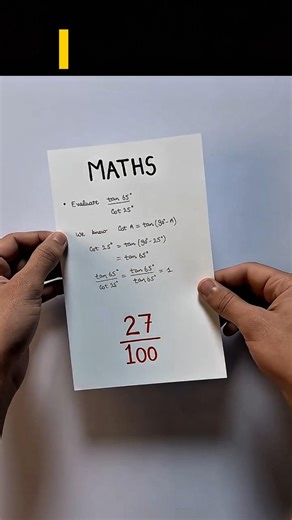 MATHS
• Evaluate tan 65° / Cot 25°
We know Cot A = tan (90° - A)
Cot 25° = tan (90° - 25°)
= tan 65°
tan 65° / Cot 25° = tan 65° / tan 65° = 1
27
100